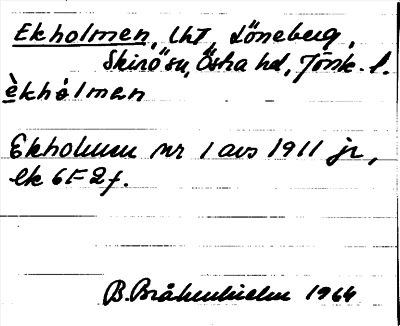 Ekholmen, lht, Löneberg,
Skirö sn, Östra hd, Jönk. l.
èkhólmen
Ekholmen nr 1 avs 1911 jr,
ek 6F2f.
B. Bråkenhielm 1964